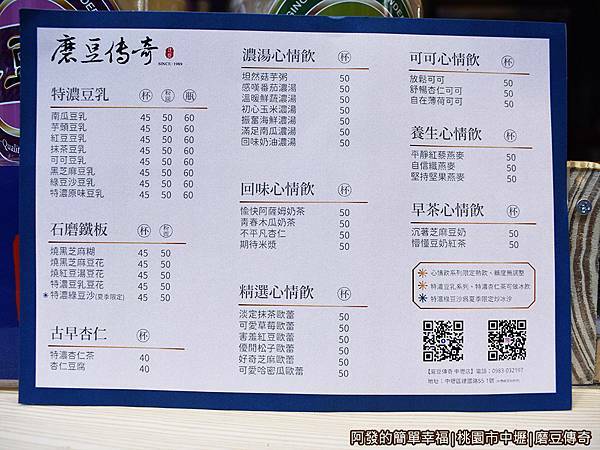 磨豆傳奇
SINCE 1989
特濃豆乳 杯 瓶
南瓜豆乳 45 50 60
芋頭豆乳 45 50 60
紅豆豆乳 45 50 60
抹茶豆乳 45 50 60
可可豆乳 45 50 60
黑芝麻豆乳 45 50 60
綠豆沙豆乳 45 50 60
特濃原味豆乳 45 50 60
石磨鐵板 杯
燒黑芝麻糊 45 50
燒黑芝麻豆花 45 50
燒紅豆湯豆花 45 50
特濃豆乳豆花 45 50
特濃綠豆沙(夏季限定) 45 50
古早杏仁 杯
特濃杏仁茶 40
杏仁豆腐 40
濃湯心情飲 杯
坦然菇芋粥 50
感嘆番茄濃湯 50
溫暖鮮蔬濃湯 50
初心玉米濃湯 50
振奮海鮮濃湯 50
滿足南瓜濃湯 50
回味奶油濃湯 50
回味心情飲 杯
愉快阿薩姆奶茶 50
青春木瓜奶茶 50
不平凡杏仁 50
期待米漿 50
精選心情飲 杯
淡定抹茶歐蕾 50
可愛草莓歐蕾 50
害羞紅豆歐蕾 50
優閒松子歐蕾 50
好奇芝麻歐蕾 50
可愛哈密瓜歐蕾 50
可可心情飲 杯
放鬆可可 50
舒暢杏仁可可 50
自在薄荷可可 50
養生心情飲 杯
平靜紅藜燕麥 50
自信纖燕麥 50
堅持堅果燕麥 50
早茶心情飲 杯
沉著芝麻豆奶 50
懵懂豆奶紅茶 50
心情飲系列限定熱飲、糖度無調整
特濃豆乳系列、特濃杏仁茶可做冰飲
特濃綠豆沙為夏季限定炒冰沙
【磨豆傳奇 中壢店】電話：0983-032197
地址：中壢區建國路55-1號
阿發的簡單幸福|桃園市中壢|磨豆傳奇